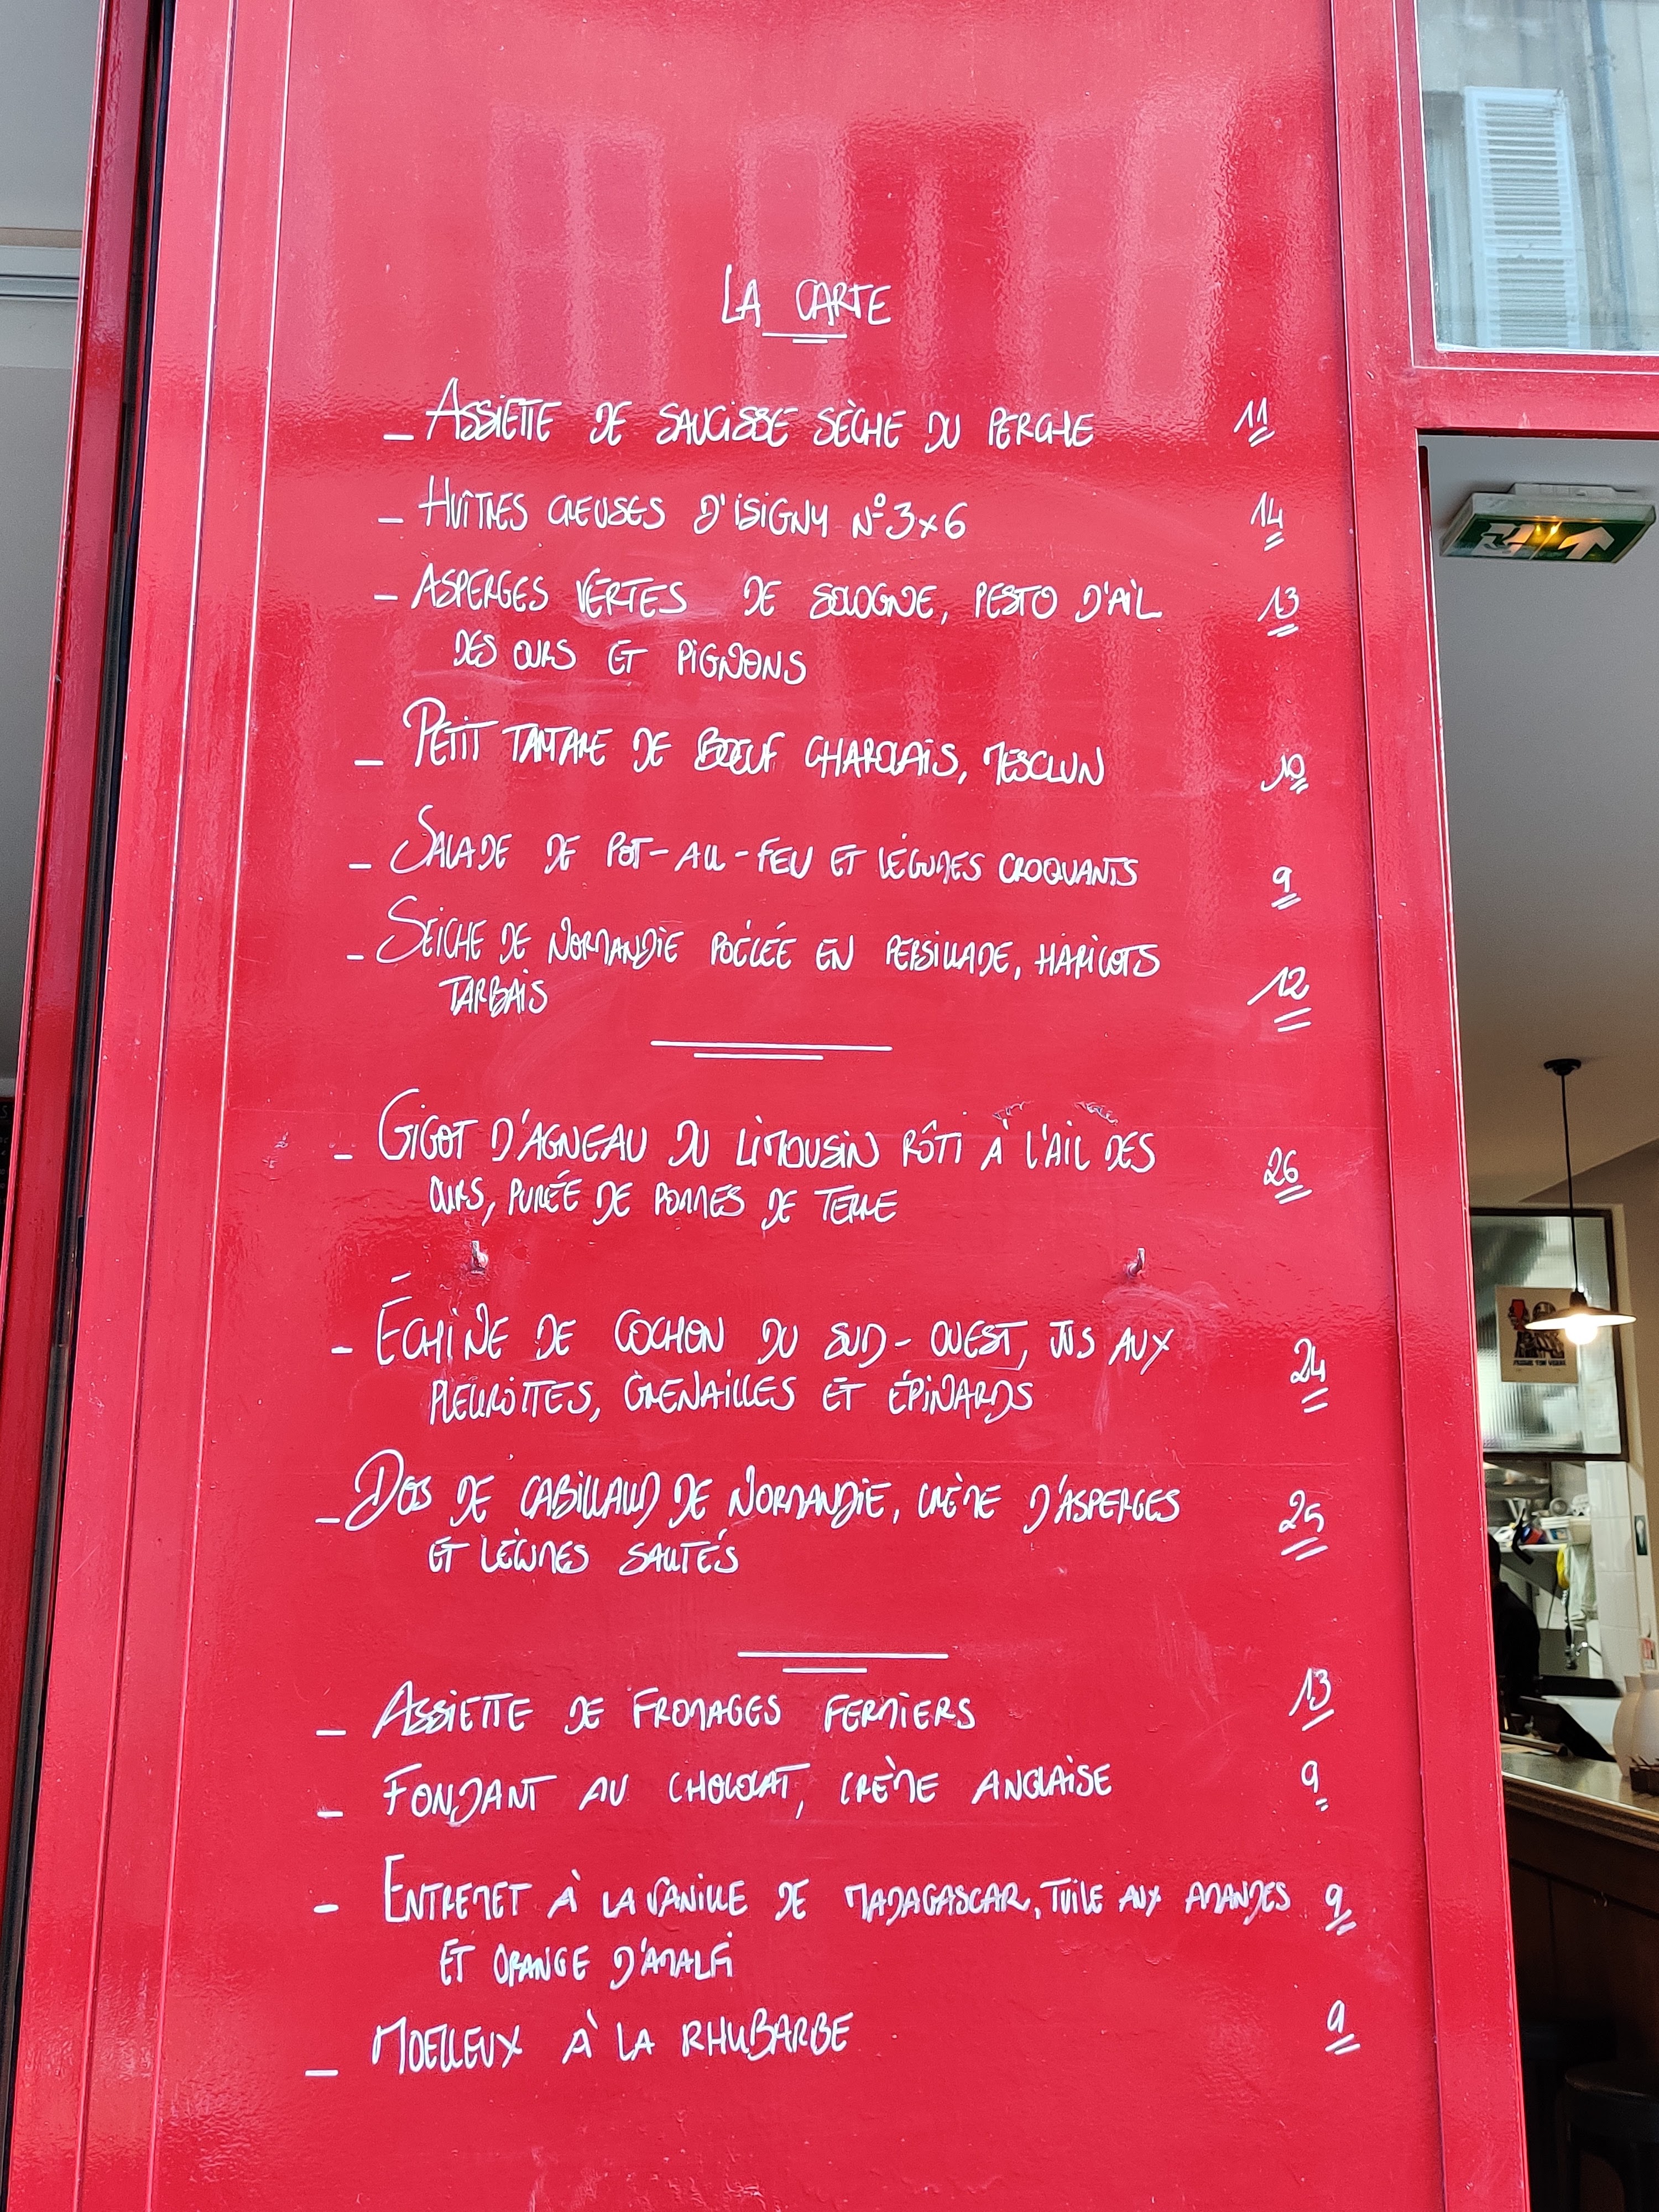 LA CARTE
- ASSIETTE DE SAUCISSE SÈCHE DU PERCHE 11
- HUÎTRES CREUSES D'ISIGNY N°3 x 6 14
- ASPERGES VERTES DE SOLOGNE, PESTO D'AIL 13
DES OURS ET PIGNONS
- PETIT TARTARE DE BOEUF CHAROLAIS, MESCLUN 10
- SALADE DE POT-AU-FEU ET LÉGUMES CROQUANTS 9
- SEICHE DE NORMANDIE POÊLÉE EN PERSILLADE, HARICOTS
TARBAIS 12
- GIGOT D'AGNEAU DU LIMOUSIN RÔTI À L'AIL DES 26
OURS, PURÉE DE POMMES DE TERRE
- ÉCHINE DE COCHON DU SUD-OUEST, JUS AUX 24
PLEUROTTES, GRENAILLES ET ÉPINARDS
- DOS DE CABILLAUD DE NORMANDIE, CRÈME D'ASPERGES 25
ET LÉGUMES SAUTÉS
- ASSIETTE DE FROMAGES FERMIERS 13
- FONDANT AU CHOCOLAT, CRÈME ANGLAISE 9
- ENTREMET À LA VANILLE DE MADAGASCAR, TUILE AUX AMANDES 9
ET ORANGE D'AMALFI
- MOELLEUX À LA RHUBARBE 9